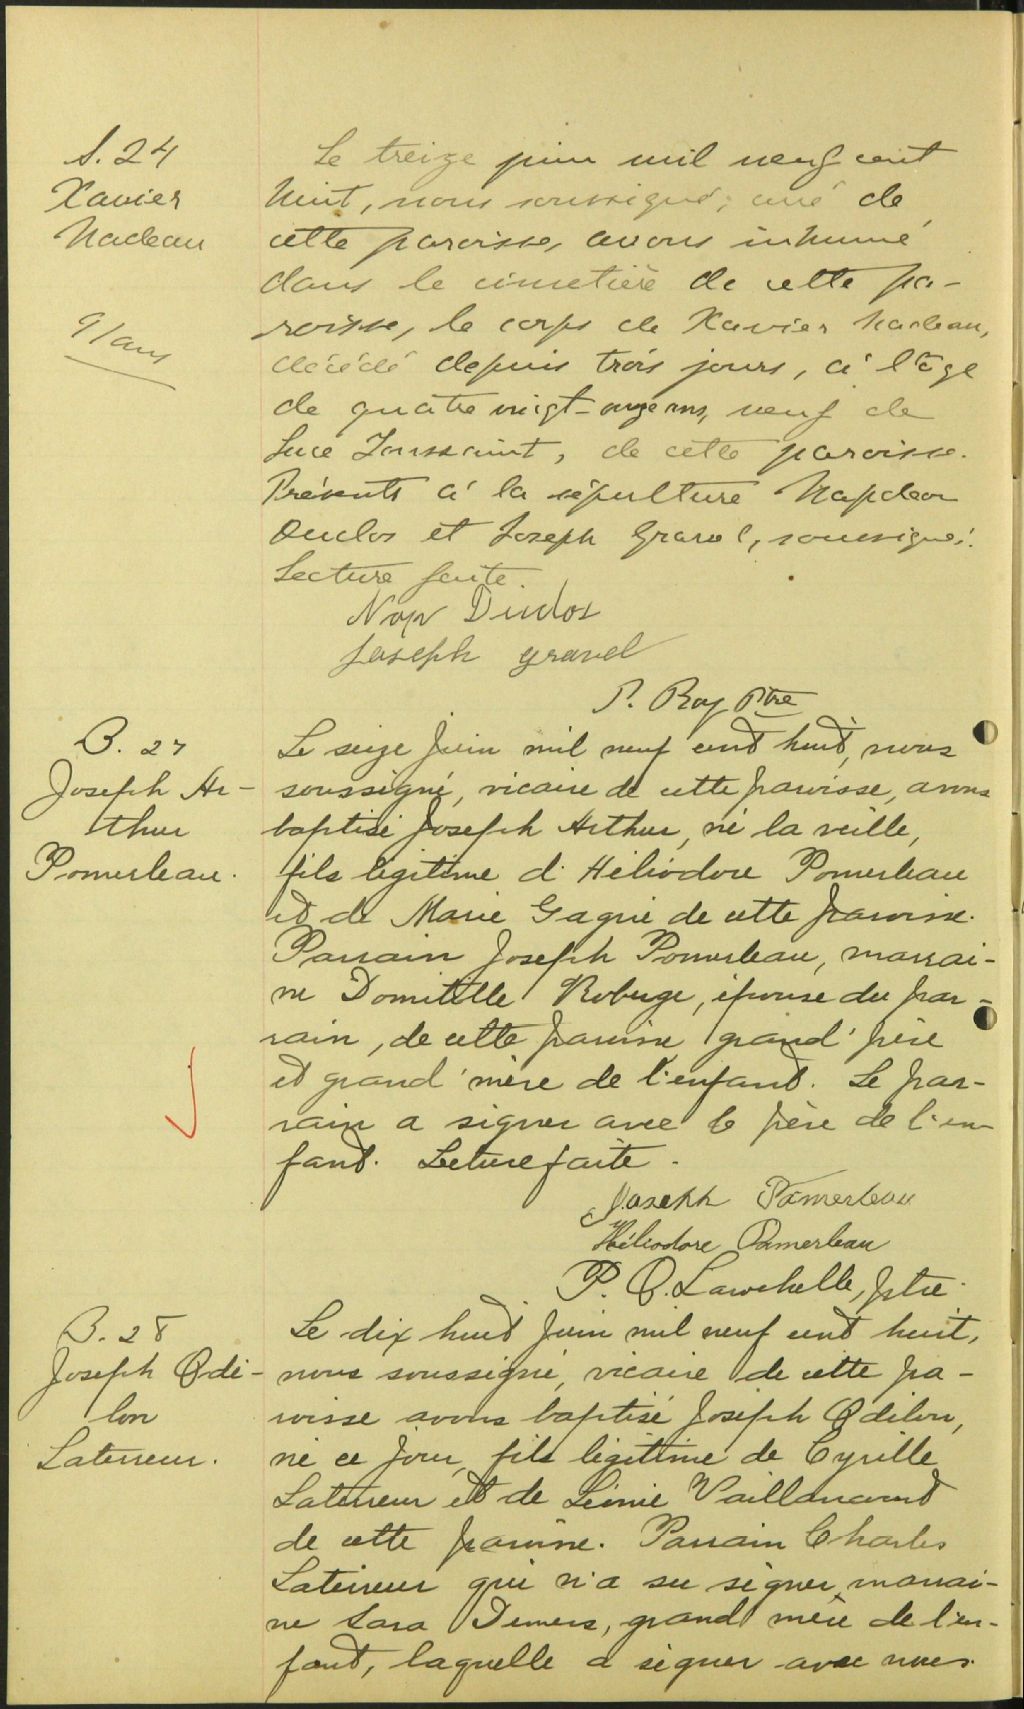 S. 24
Xavier
Nadeau
91 ans
Le treize juin mil neuf cent
huit, nous soussigné, curé de
cette paroisse, avons inhumé
dans le cimetière de cette pa-
roisse, le corps de Xavier Nadeau,
décédé depuis trois jours, à l'âge
de quatre vingt-onze ans, veuf de
Luce Toussaint, de cette paroisse.
Présents à la sépulture Napoléon
Duclos et Joseph Gravel, soussignés.
Lecture faite.
Nap Duclos
Joseph gravel
P. Roy Ptre
B. 27
Joseph Ar-
thur
Pomerleau.
Le seize Juin mil neuf cent huit, nous
soussigné, vicaire de cette paroisse, avons
baptisé Joseph Arthur, né la veille,
fils légitime d'Héliodore Pomerleau
et de Marie Gagné de cette paroisse.
Parrain Joseph Pomerleau, marrai-
ne Domitille Roberge, épouse du par-
rain, de cette paroisse grand'père
et grand'mère de l'enfant. Le par-
rain a signer avec le père de l'en-
fant. Lecture faite.
Joseph Pomerleau
Héliodore Pomerleau
P. O. Larochelle, ptre.
B. 28
Joseph Odi-
lon
Laterreur.
Le dix huit Juin mil neuf cent huit,
nous soussigné, vicaire de cette pa-
roisse avons baptisé Joseph Odilon,
né ce jour, fils légitime de Cyrille
Laterreur et de Léonie Vaillancourt
de cette paroisse. Parrain Charles
Laterreur qui n'a su signer, marrai-
ne Sara Demers, grand mère de l'en-
fant, laquelle a signer avec nous.